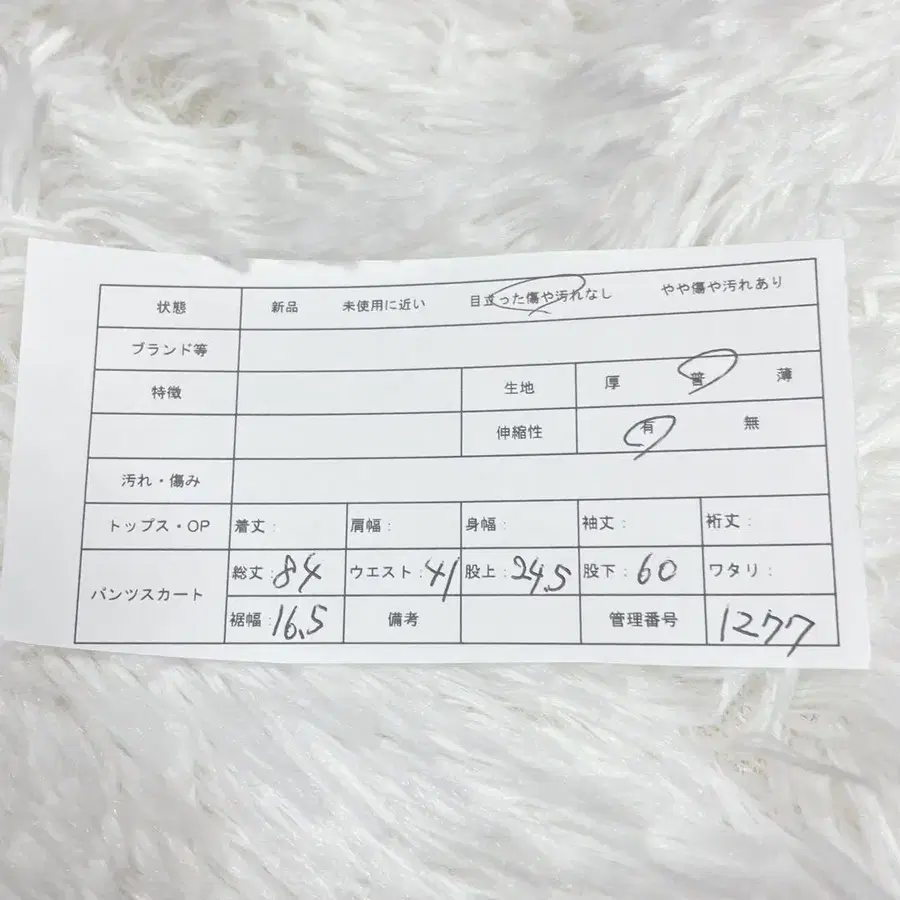 状態 新品 未使用に近い 目立った傷や汚れなし やや傷や汚れあり
ブランド等
特徴 生地 厚 普 薄
伸縮性 有 無
汚れ・傷み
トップス・OP 着丈: 肩幅: 身幅: 袖丈: 裄丈:
パンツスカート 総丈:84 ウエスト:41 股上:24.5 股下:60 ワタリ:
裾幅:16.5 備考 管理番号 1277